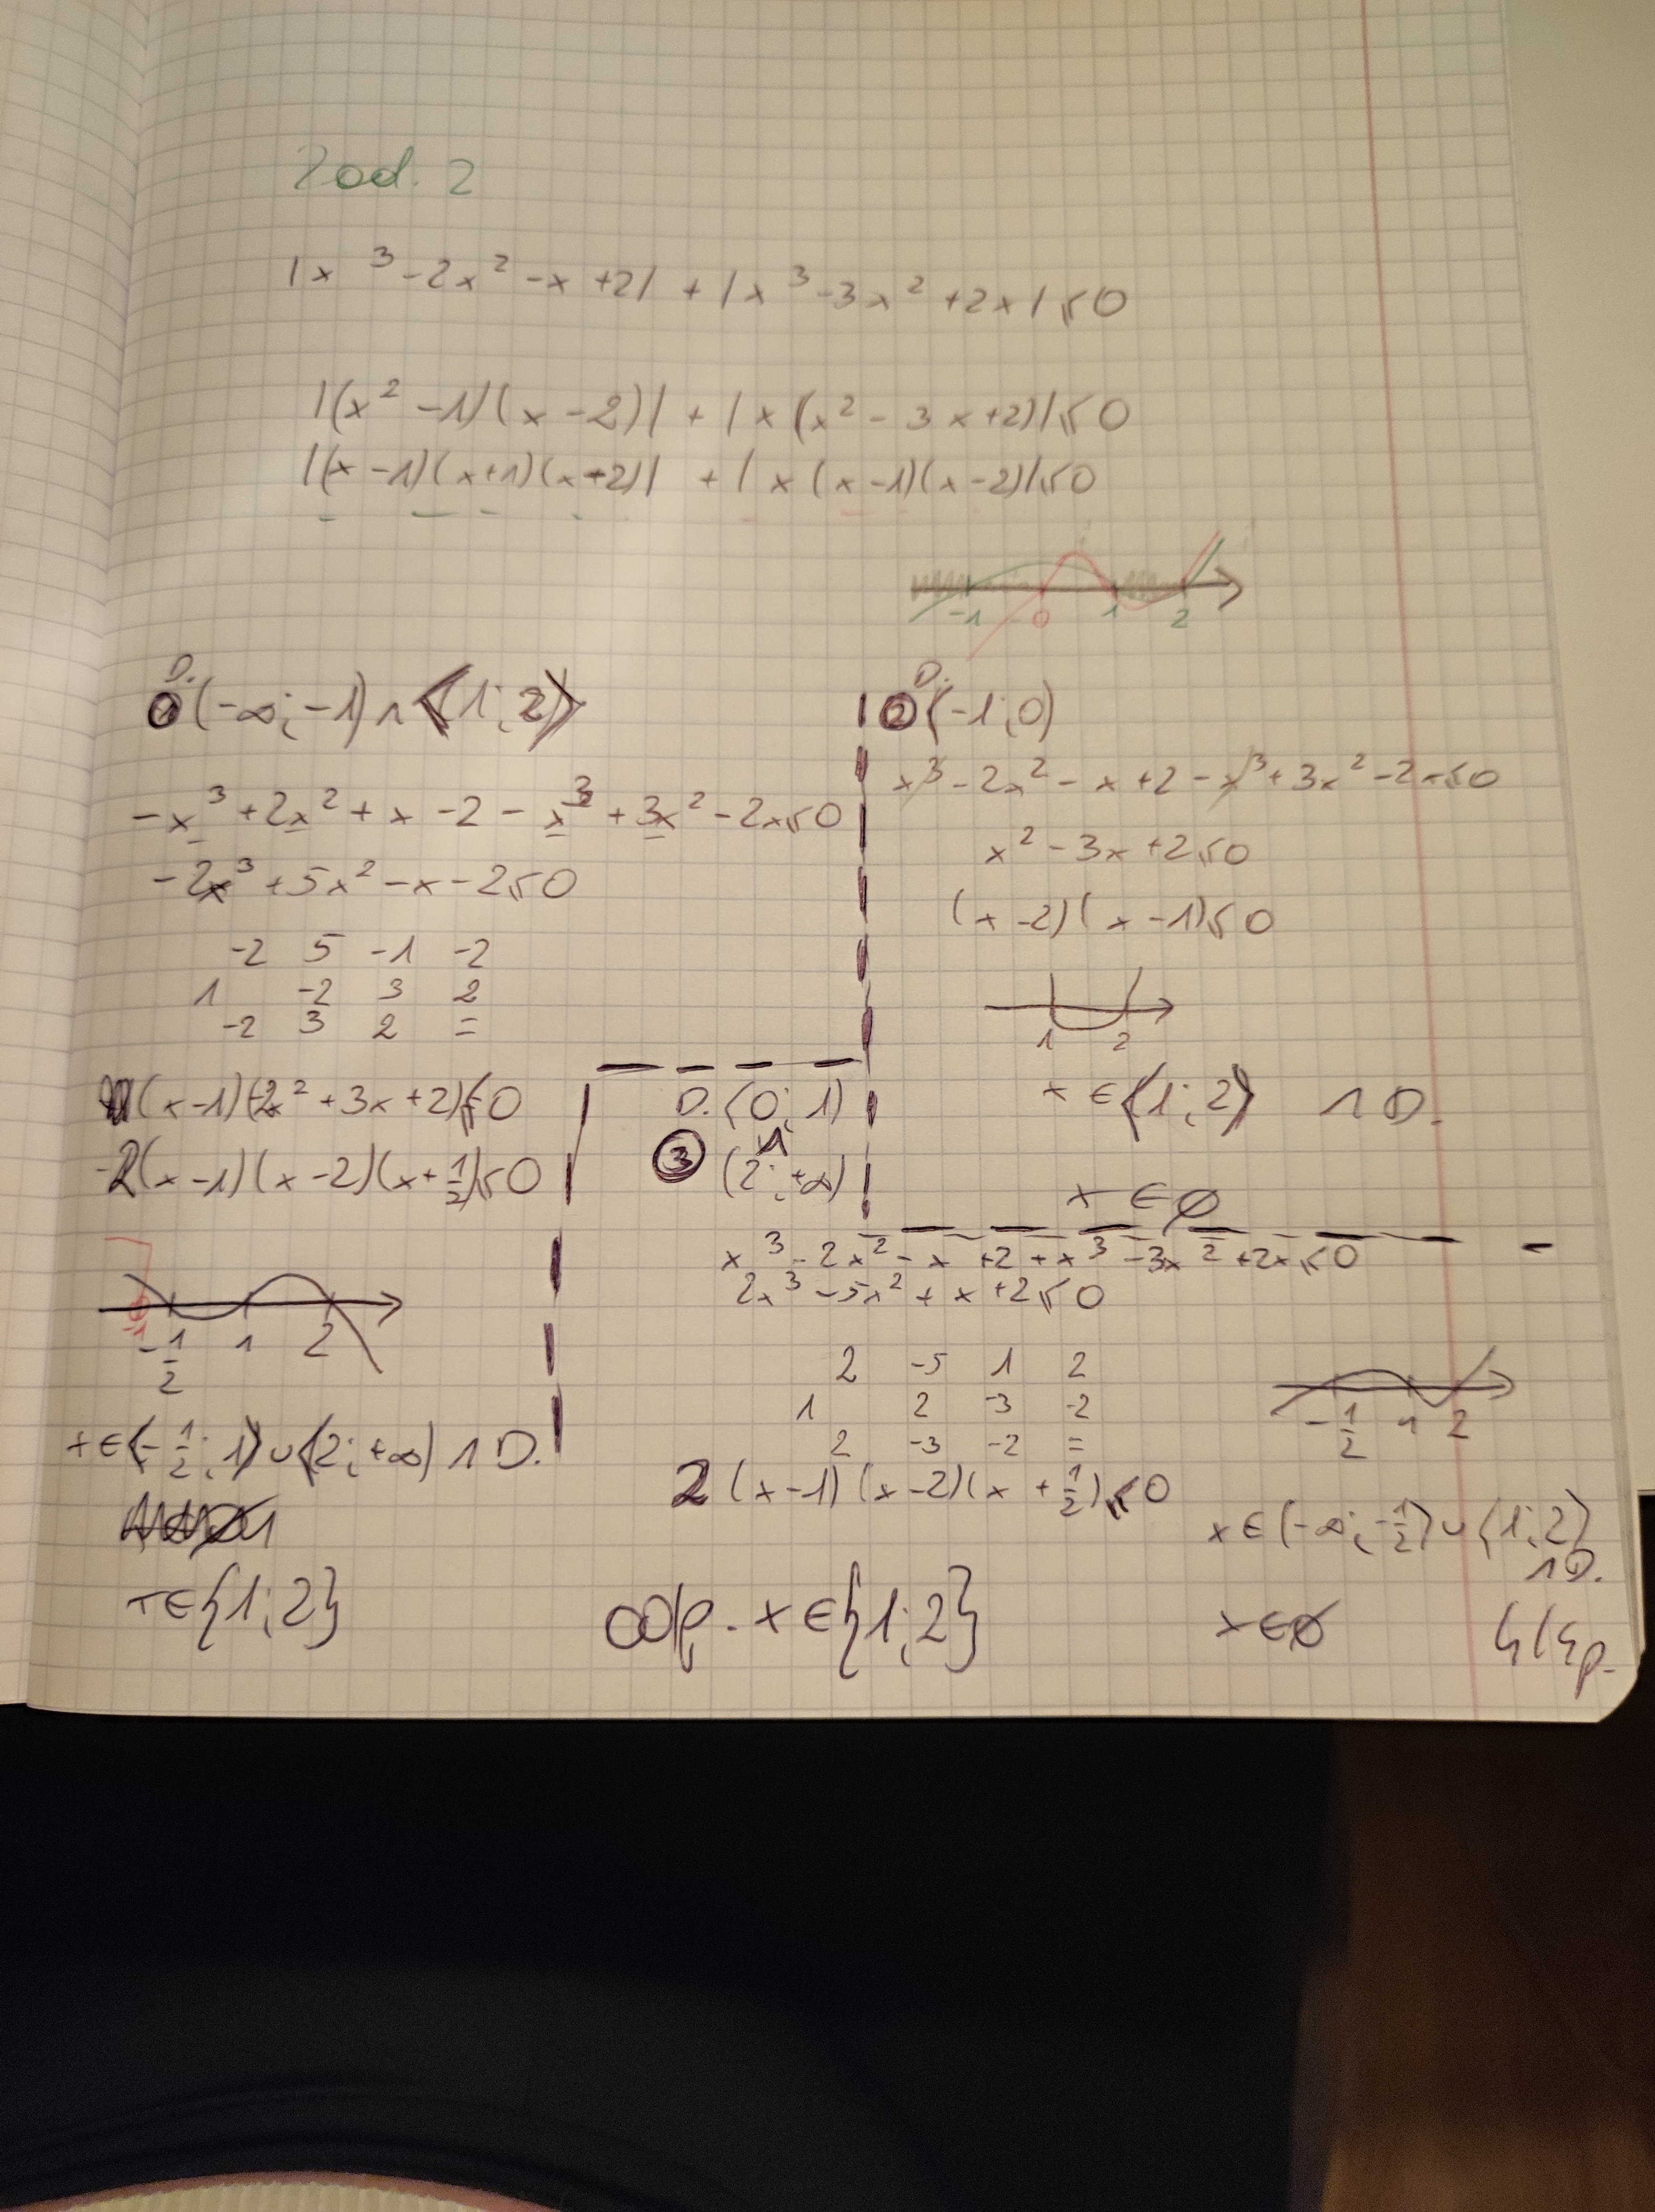 Zad. 2
|x³-2x²-x+2| + |x³-3x²+2x|≤0
|(x²-1)(x-2)| + |x(x²-3x+2)|≤0
|(x-1)(x+1)(x-2)| + |x(x-1)(x-2)|≤0
-1 0 1 2
D.
① (-∞;-1)∩⟨1;2⟩
-x³+2x²+x-2-x³+3x²-2x≤0
-2x³+5x²-x-2≤0
-2 5 -1 -2
1 -2 3 2
-2 3 2 =
(x-1)(-2x²+3x+2)≤0
-2(x-1)(x-2)(x+1/2)≤0
-1 -1/2 1 2
x∈⟨-1/2;1⟩∪⟨2;+∞) ∩ D.
x∈{1;2}
D.
② ⟨-1;0)
x³-2x²-x+2-x³+3x²-2x≤0
x²-3x+2≤0
(x-2)(x-1)≤0
1 2
x∈⟨1;2⟩ ∩ D.
x∈∅
D. ⟨0;1)
③ ∩
(2;+∞)
x³-2x²-x+2+x³-3x²+2x≤0
2x³-5x²+x+2≤0
2 -5 1 2
1 2 -3 -2
2 -3 -2 =
2(x-1)(x-2)(x+1/2)≤0
-1/2 1 2
x∈(-∞;-1/2⟩∪⟨1;2⟩
∩D.
x∈∅
odp. x∈{1;2}
4/4p.